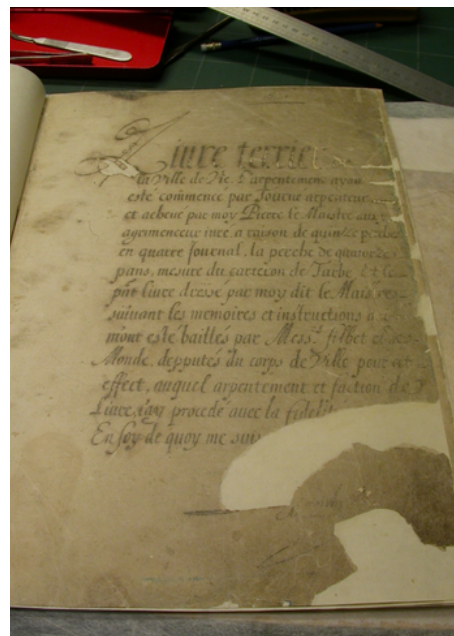 Livre terrier
la Ville de Vic. L'arpentement ayant
esté commencé par Journe arpenteur
et achevé par moy Pierre le Maistre
agrimenceur iuré, a raison de quinze perches
en quatre Journal, la perche de quatorze
pans, mesure du carteron de Tarbe, Et le
pnt livre dressé par moy dit le Mais
suivant les memoires et instructions
mont esté baillés par Mess.rs
Monde, depputés du corps de Ville pour cet
effect, auquel arpentement et faction de
Livre, iay procedé avec la fidelité
En foy de quoy me suis